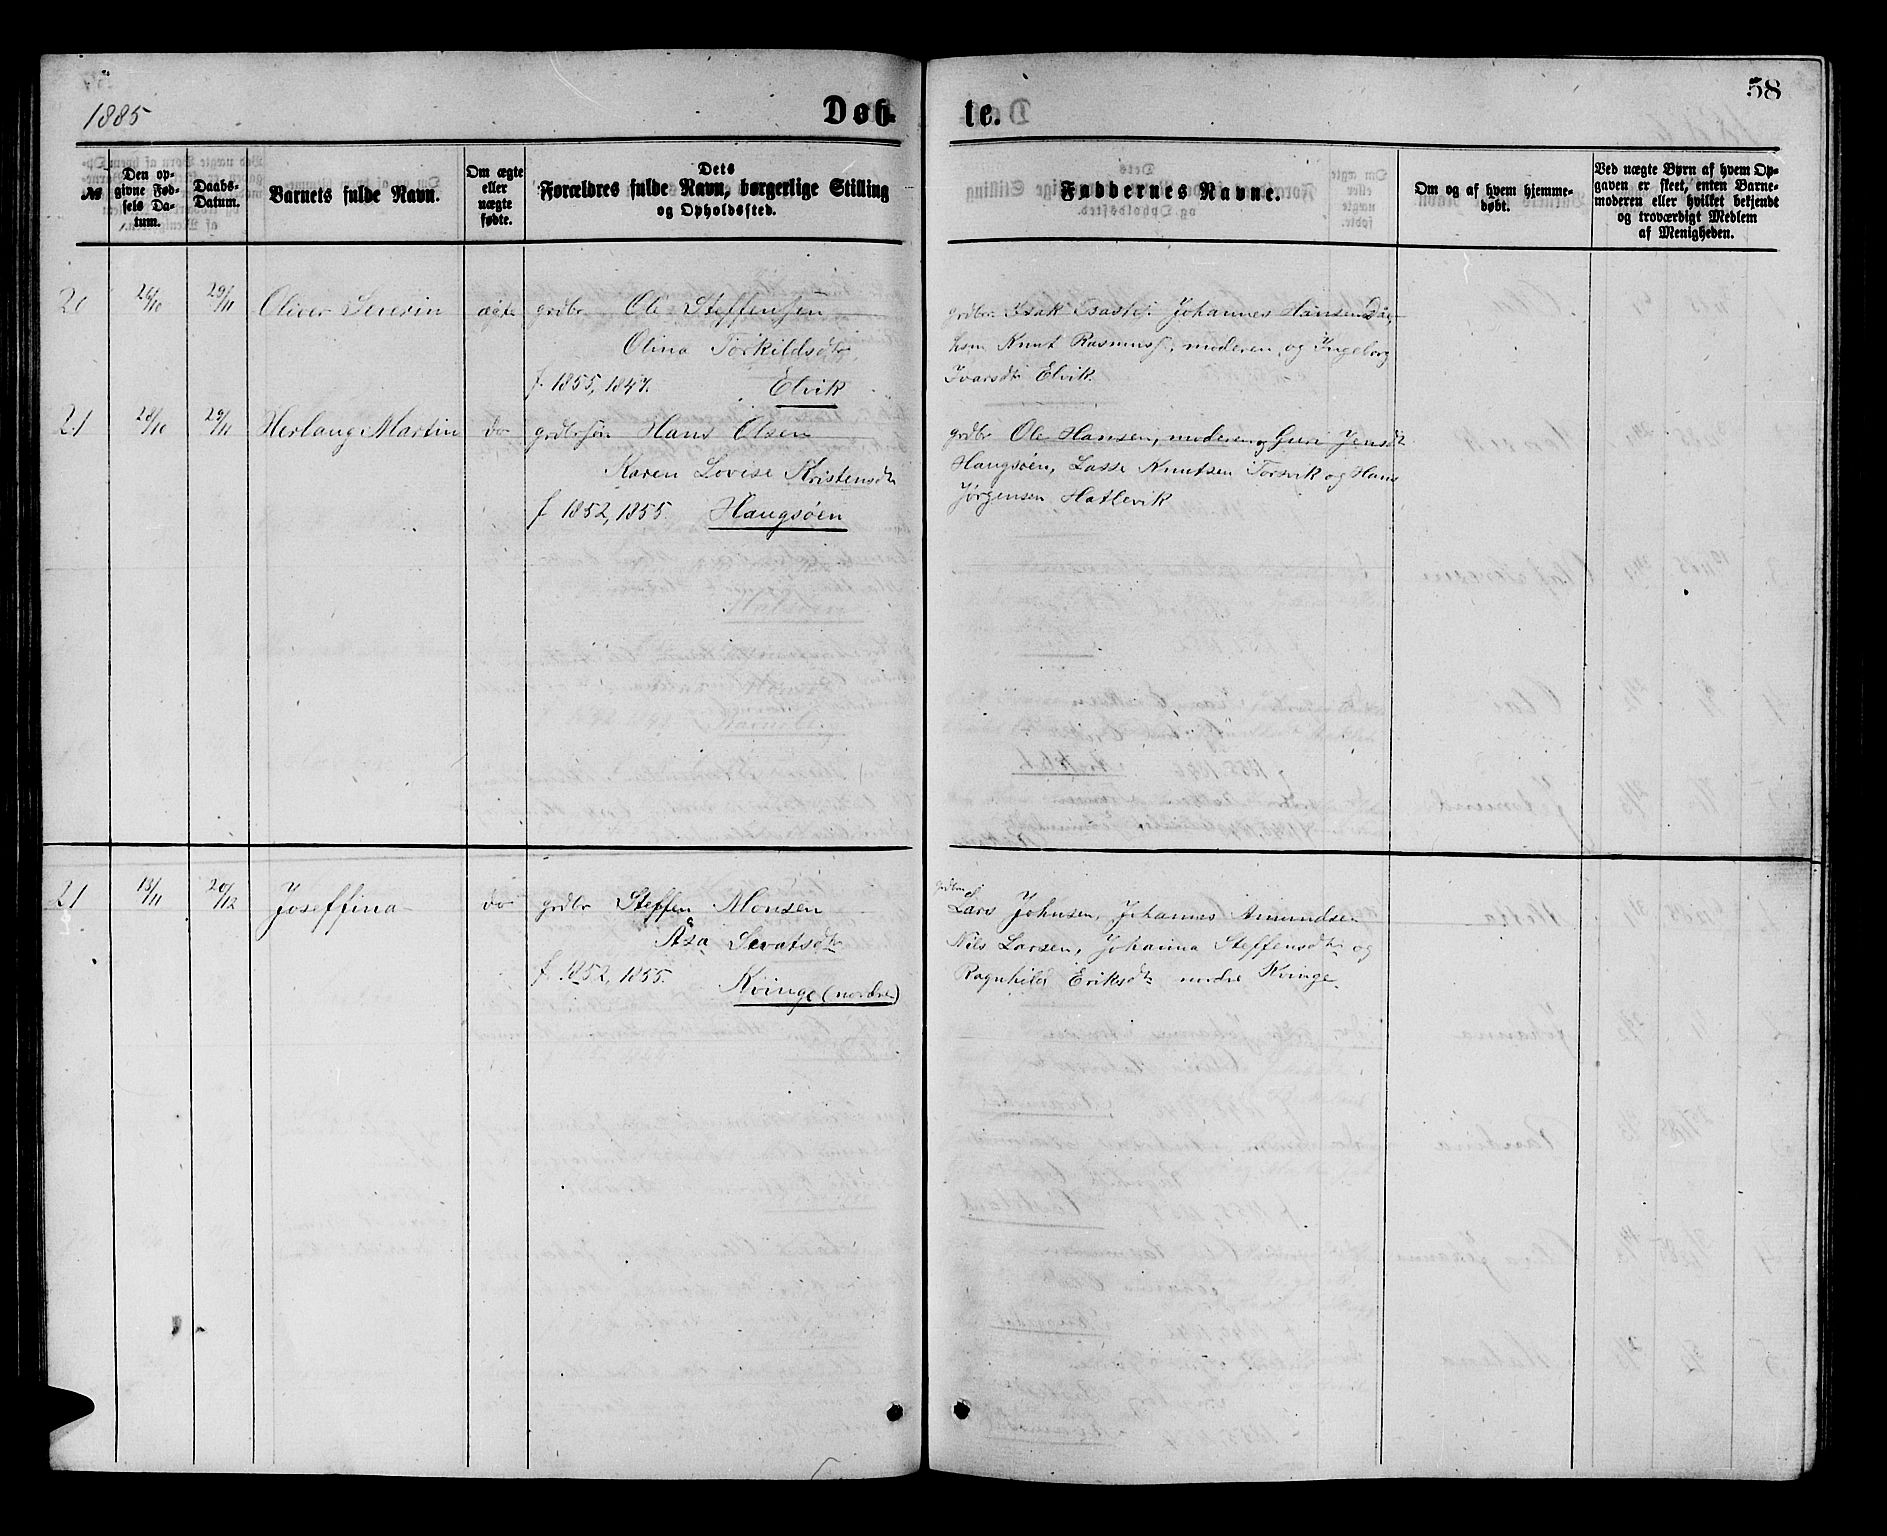 1885
Døb
te.
58
№
Den op-
givne Fød-
sels Da-
tum.
Daabs-
Datum.
Barnets fulde Navn.
Om ægte
eller
uægte
fødte.
Dets
Forældres fulde Navn, borgerlige Stilling
og Opholdssted.
Faddernes Navne.
Om og af hvem hjemme-
døbt.
Ved uægte Børn af hvem Op-
gaven er skeet, enten Barne-
moderen eller hvilket bekjendt
og troværdigt Medlem
af Menigheden.
20 26/10 29/11 Oliver Severin ægte grdbr Ole Steffensen
Olina Torkildsdtr
f. 1855, 1847. Elvik
grdbr. Isak Johannes Hansen
Knut Rasmuss, moderen, og Ingeborg
Ivarsdtr Elvik.
21 28/10 29/11 Herlaug Martin do grdbrsøn Hans Olsen
Karen Lovise Kristensdtr
f 1852, 1855. Haugsøen
grdbr Ole Hansen, moderen og Guri Jensdtr
Haugsøen, Lasse Knutsen Torsvik og Hans
Jørgensen Hatlevik
21 13/11 20/12 Joseffina do grdbr Steffen Monsen
Åsa Sevatsdtr
f. 1852, 1855. Kvinge (nordre)
grdbr
Lars Johnsen, Johannes Amundsen
Nils Larsen, Johanna Steffensdtr og
Ragnhild Eriksdtr nordre Kvinge.